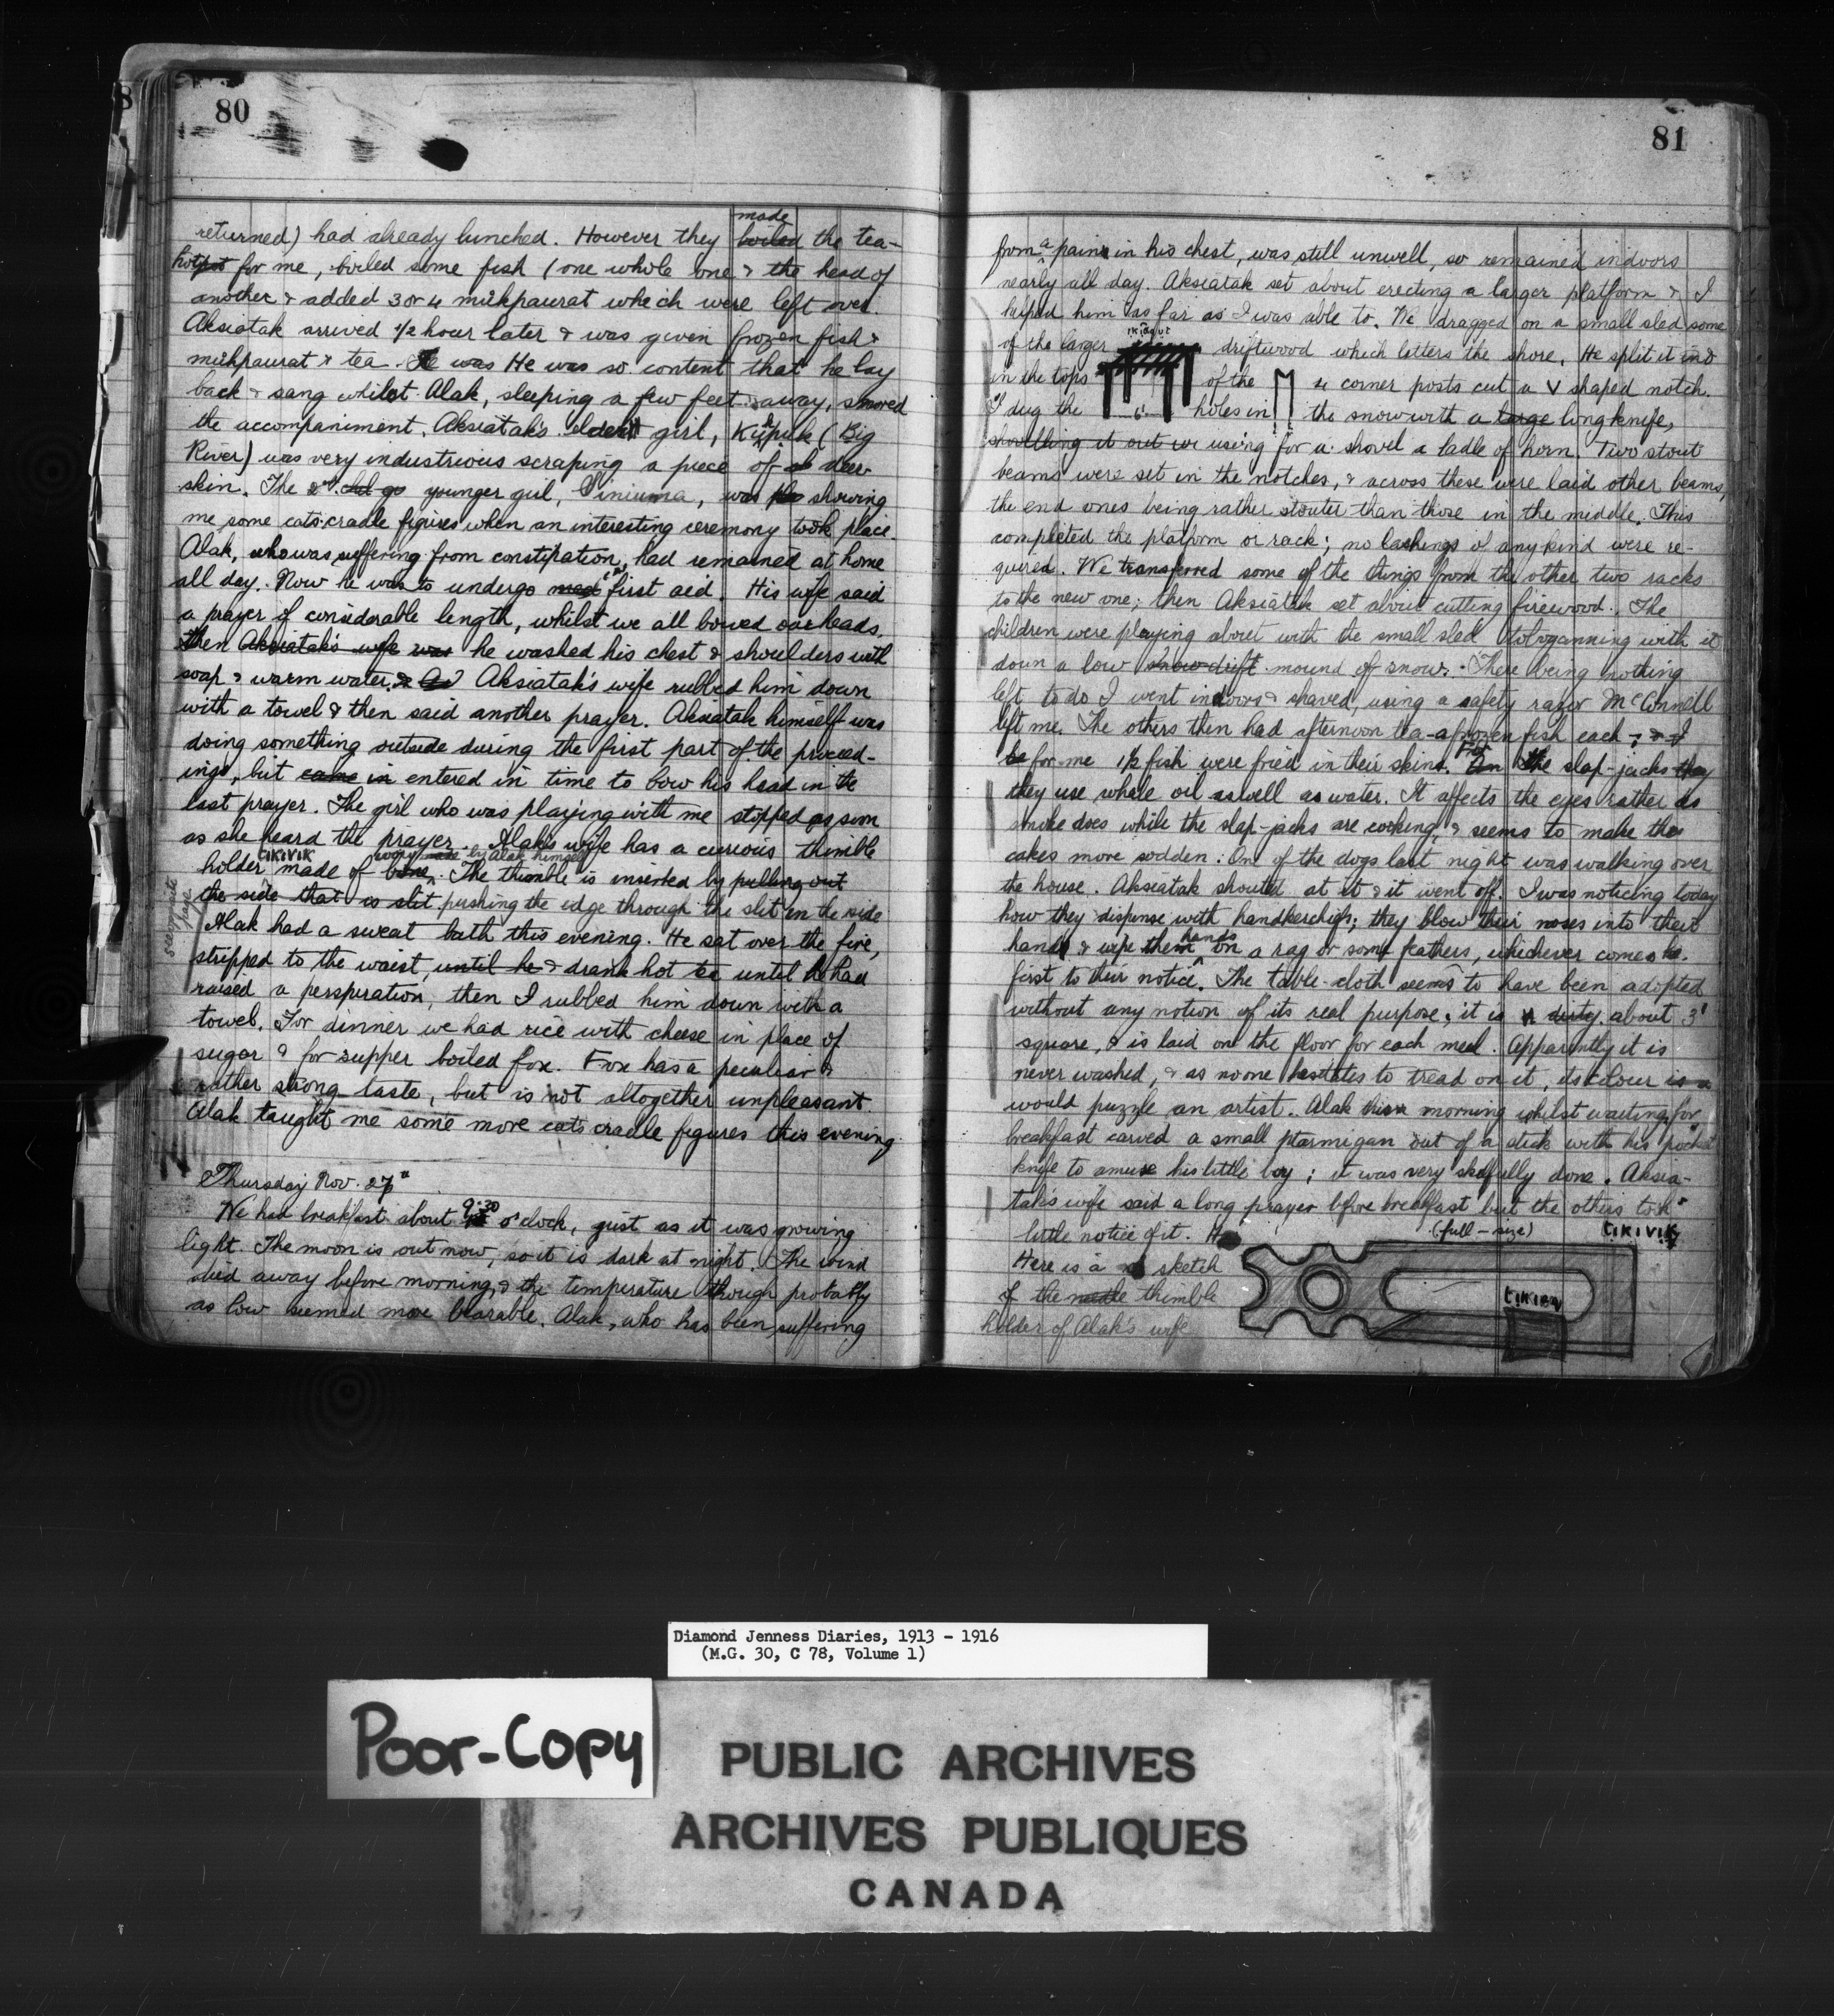 80
returned) had already lunched. However they boiled made the tea-
hotpot for me, boiled some fish (one whole one & the head of
another & added 3 or 4 mukpaurat which were left over.
Aksiatak arrived 1/2 hour later & was given frozen fish &
mukpaurat & tea. He was He was so content that he lay
back & sang whilst Alak, sleeping a few feet away, snored
the accompaniment. Aksiatak's eldest girl, Kukpuk (Big
River) was very industrious scraping a piece of deer
skin. The 2nd younger girl, Siniuna, was showing
me some cats-cradle figures when an interesting ceremony took place.
Alak, who was suffering from constipation, had remained at home
all day. Now he was to undergo first aid. His wife said
a prayer of considerable length, whilst we all bowed our heads,
then Aksiatak's wife was he washed his chest & shoulders with
soap & warm water, & Aksiatak's wife rubbed him down
with a towel & then said another prayer. Aksiatak himself was
doing something outside during the first part of the proceed-
ings, but came in entered in time to bow his head in the
last prayer. The girl who was playing with me stopped as soon
as she heard the prayer. Alak's wife has a curious thimble
holder tikivik made of bone ivory made by Alak himself. The thimble is inserted by pulling out
the side that is slit pushing the edge through the slit in the side
see opposite page
Alak had a sweat bath this evening. He sat over the fire,
stripped to the waist, until he & drank hot tea until he had
raised a perspiration, then I rubbed him down with a
towel. For dinner we had rice with cheese in place of
sugar & for supper boiled fox. Fox has a peculiar &
rather strong taste, but is not altogether unpleasant.
Alak taught me some more cats cradle figures this evening.
Thursday Nov. 27th
We had breakfast about 9.30 o'clock, just as it was growing
light. The moon is out now, so it is dark at night. The wind
died away before morning, & the temperature though probably
as low seemed more bearable. Alak, who has been suffering
81
from a pain in his chest, was still unwell, so remained indoors
nearly all day. Aksiatak set about erecting a larger platform & I
helped him as far as I was able to. We dragged on a small sled some
of the larger driftwood which litters the shore. He split it and
in the tops of the 4 corner posts cut a V shaped notch.
I dug the holes in the snow with a large long knife,
shovelling it out using for a shovel a ladle of horn. Two stout
beams were set in the notches, & across these were laid other beams,
the end ones being rather stouter than those in the middle. This
completed the platform or rack; no lashings of any kind were re-
quired. We transferred some of the things from the other two racks
to the new one; then Aksiatak set about cutting firewood. The
children were playing about with the small sled tobogganning with it
down a low snow-drift mound of snow. There being nothing
left to do I went indoors & shaved, using a safety razor McConnell
left me. The others then had afternoon tea - a frozen fish each; & I
for me 1½ fish were fried in their skins. For the slap-jacks they
they use whale oil as well as water. It affects the eyes rather as
smoke does while the slap-jacks are cooking, & seems to make the
cakes more sodden. On of the dogs last night was walking over
the house. Aksiatak shouted at it & it went off. I was noticing today
how they dispense with handkerchiefs; they blow their noses into their
hands & wipe them hands on a rag or some feathers, whichever comes
first to their notice. The table-cloth seems to have been adopted
without any notion of its real purpose; it is dirty about 3'
square, & is laid on the floor for each meal. Apparently it is
never washed, & as no one hesitates to tread on it, its colour is a
would puzzle an artist. Alak this morning whilst waiting for
breakfast carved a small ptarmigan out of a stick with his pocket
knife to amuse his little boy; it was very skilfully done. Aksia-
tak's wife said a long prayer before breakfast but the others took
little notice of it.
(full-size) tikivik
Here is a sketch
of the needle thimble
holder of Alak's wife
tikieq
Diamond Jenness Diaries, 1913 - 1916
(M.G. 30, C 78, Volume 1)
Poor-Copy
PUBLIC ARCHIVES
ARCHIVES PUBLIQUES
CANADA